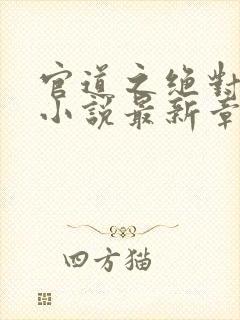 官道之绝對
小說最新章
四方猫